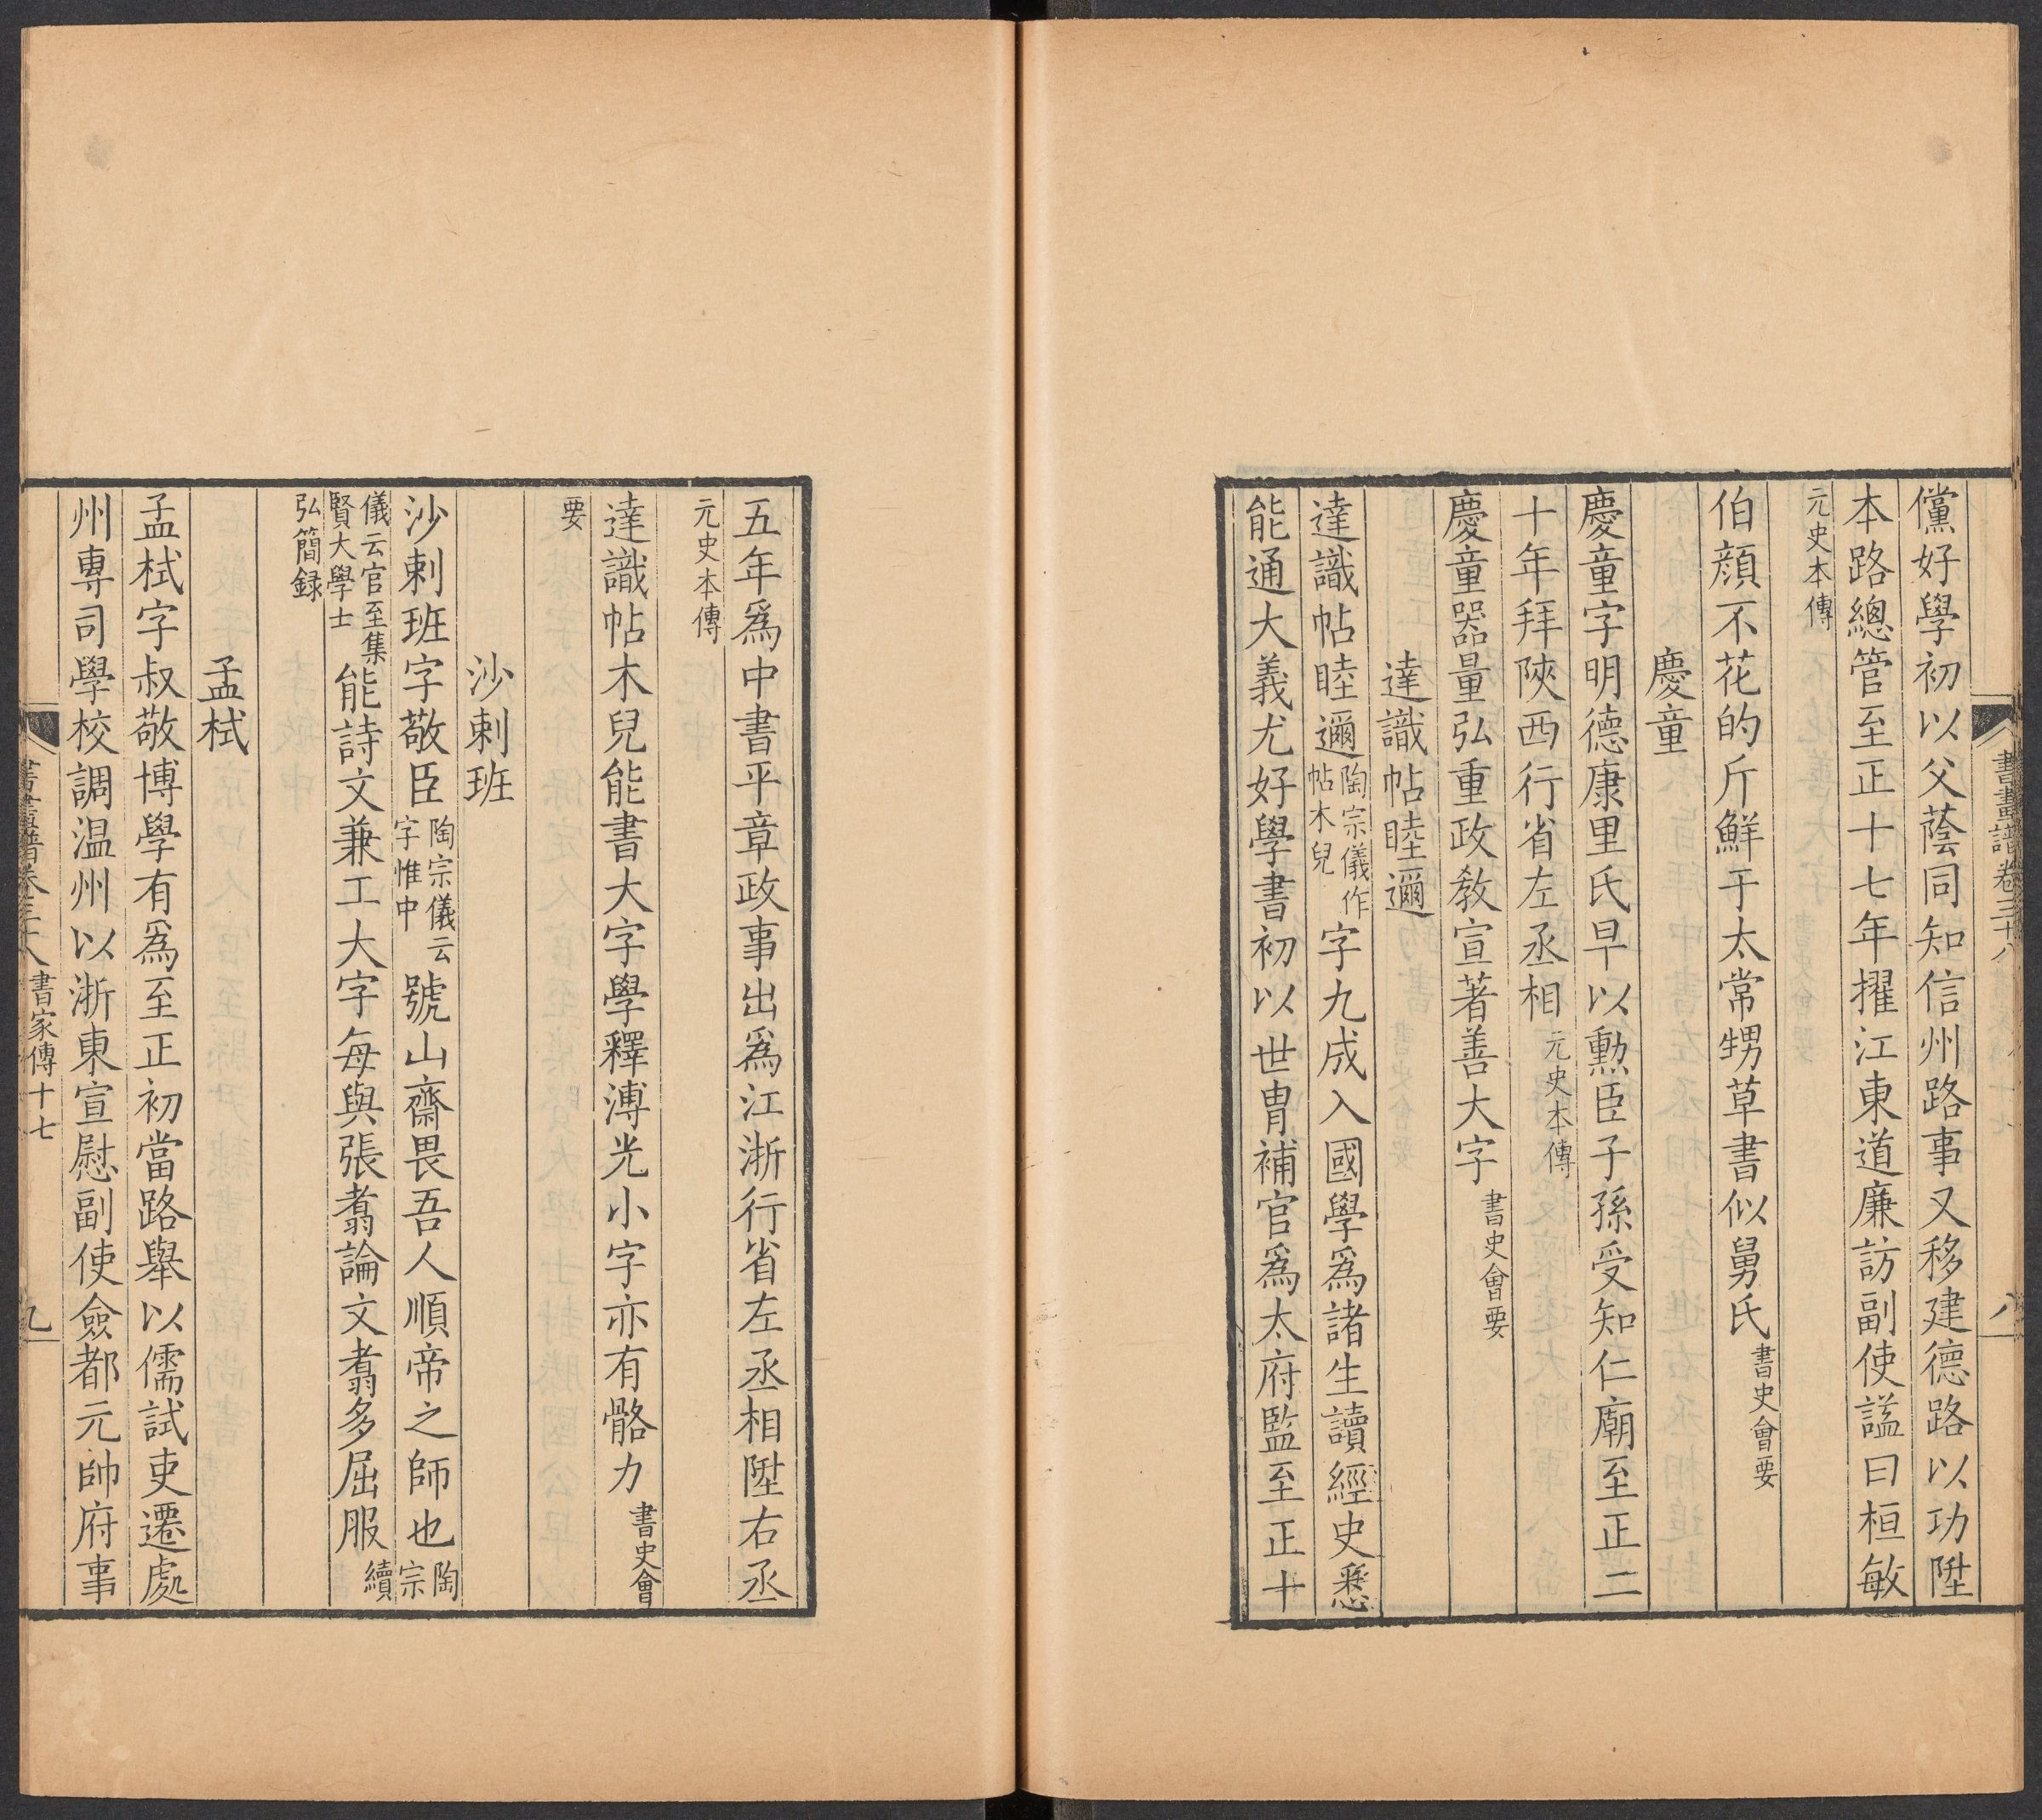 儻好學初以父蔭同知信州路事又移建德路以功陞
本路總管至正十七年擢江東道廉訪副使謚曰桓敏
元史本傳
伯顔不花的斤鮮于太常甥草書似舅氏書史會要
慶童
慶童字明德康里氏早以勲臣子孫受知仁廟至正二
十年拜陝西行省左丞相元史本傳
慶童器量弘重政教宣著善大字書史會要
達識帖睦邇
達識帖睦邇陶宗儀作帖木兒字九成入國學爲諸生讀經史悉
能通大義尤好學書初以世胄補官爲太府監至正十
書畫譜卷三十八
八
五年爲中書平章政事出爲江浙行省左丞相陞右丞
元史本傳
達識帖木兒能書大字學釋溥光小字亦有骼力書史會
要
沙剌班
沙剌班字敬臣陶宗儀云字惟中號山齋畏吾人順帝之師也陶宗
儀云官至集賢大學士能詩文兼工大字每與張翥論文翥多屈服續
弘簡録
孟栻
孟栻字叔敬博學有爲至正初當路舉以儒試吏遷處
州專司學校調温州以浙東宣慰副使僉都元帥府事
書畫譜卷三十八 書家傳十七
九